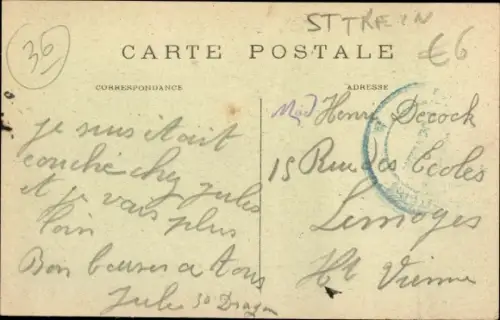 30
ST TREIN
€6
CARTE POSTALE
CORRESPONDANCE
ADRESSE
je suis était
couché chez Jules
et je vais plus
loin
Bon baiser a tous
Jules 30 Dragon
Mad Henri Decock
15 Rue des Ecoles
Limoges
Hte Vienne